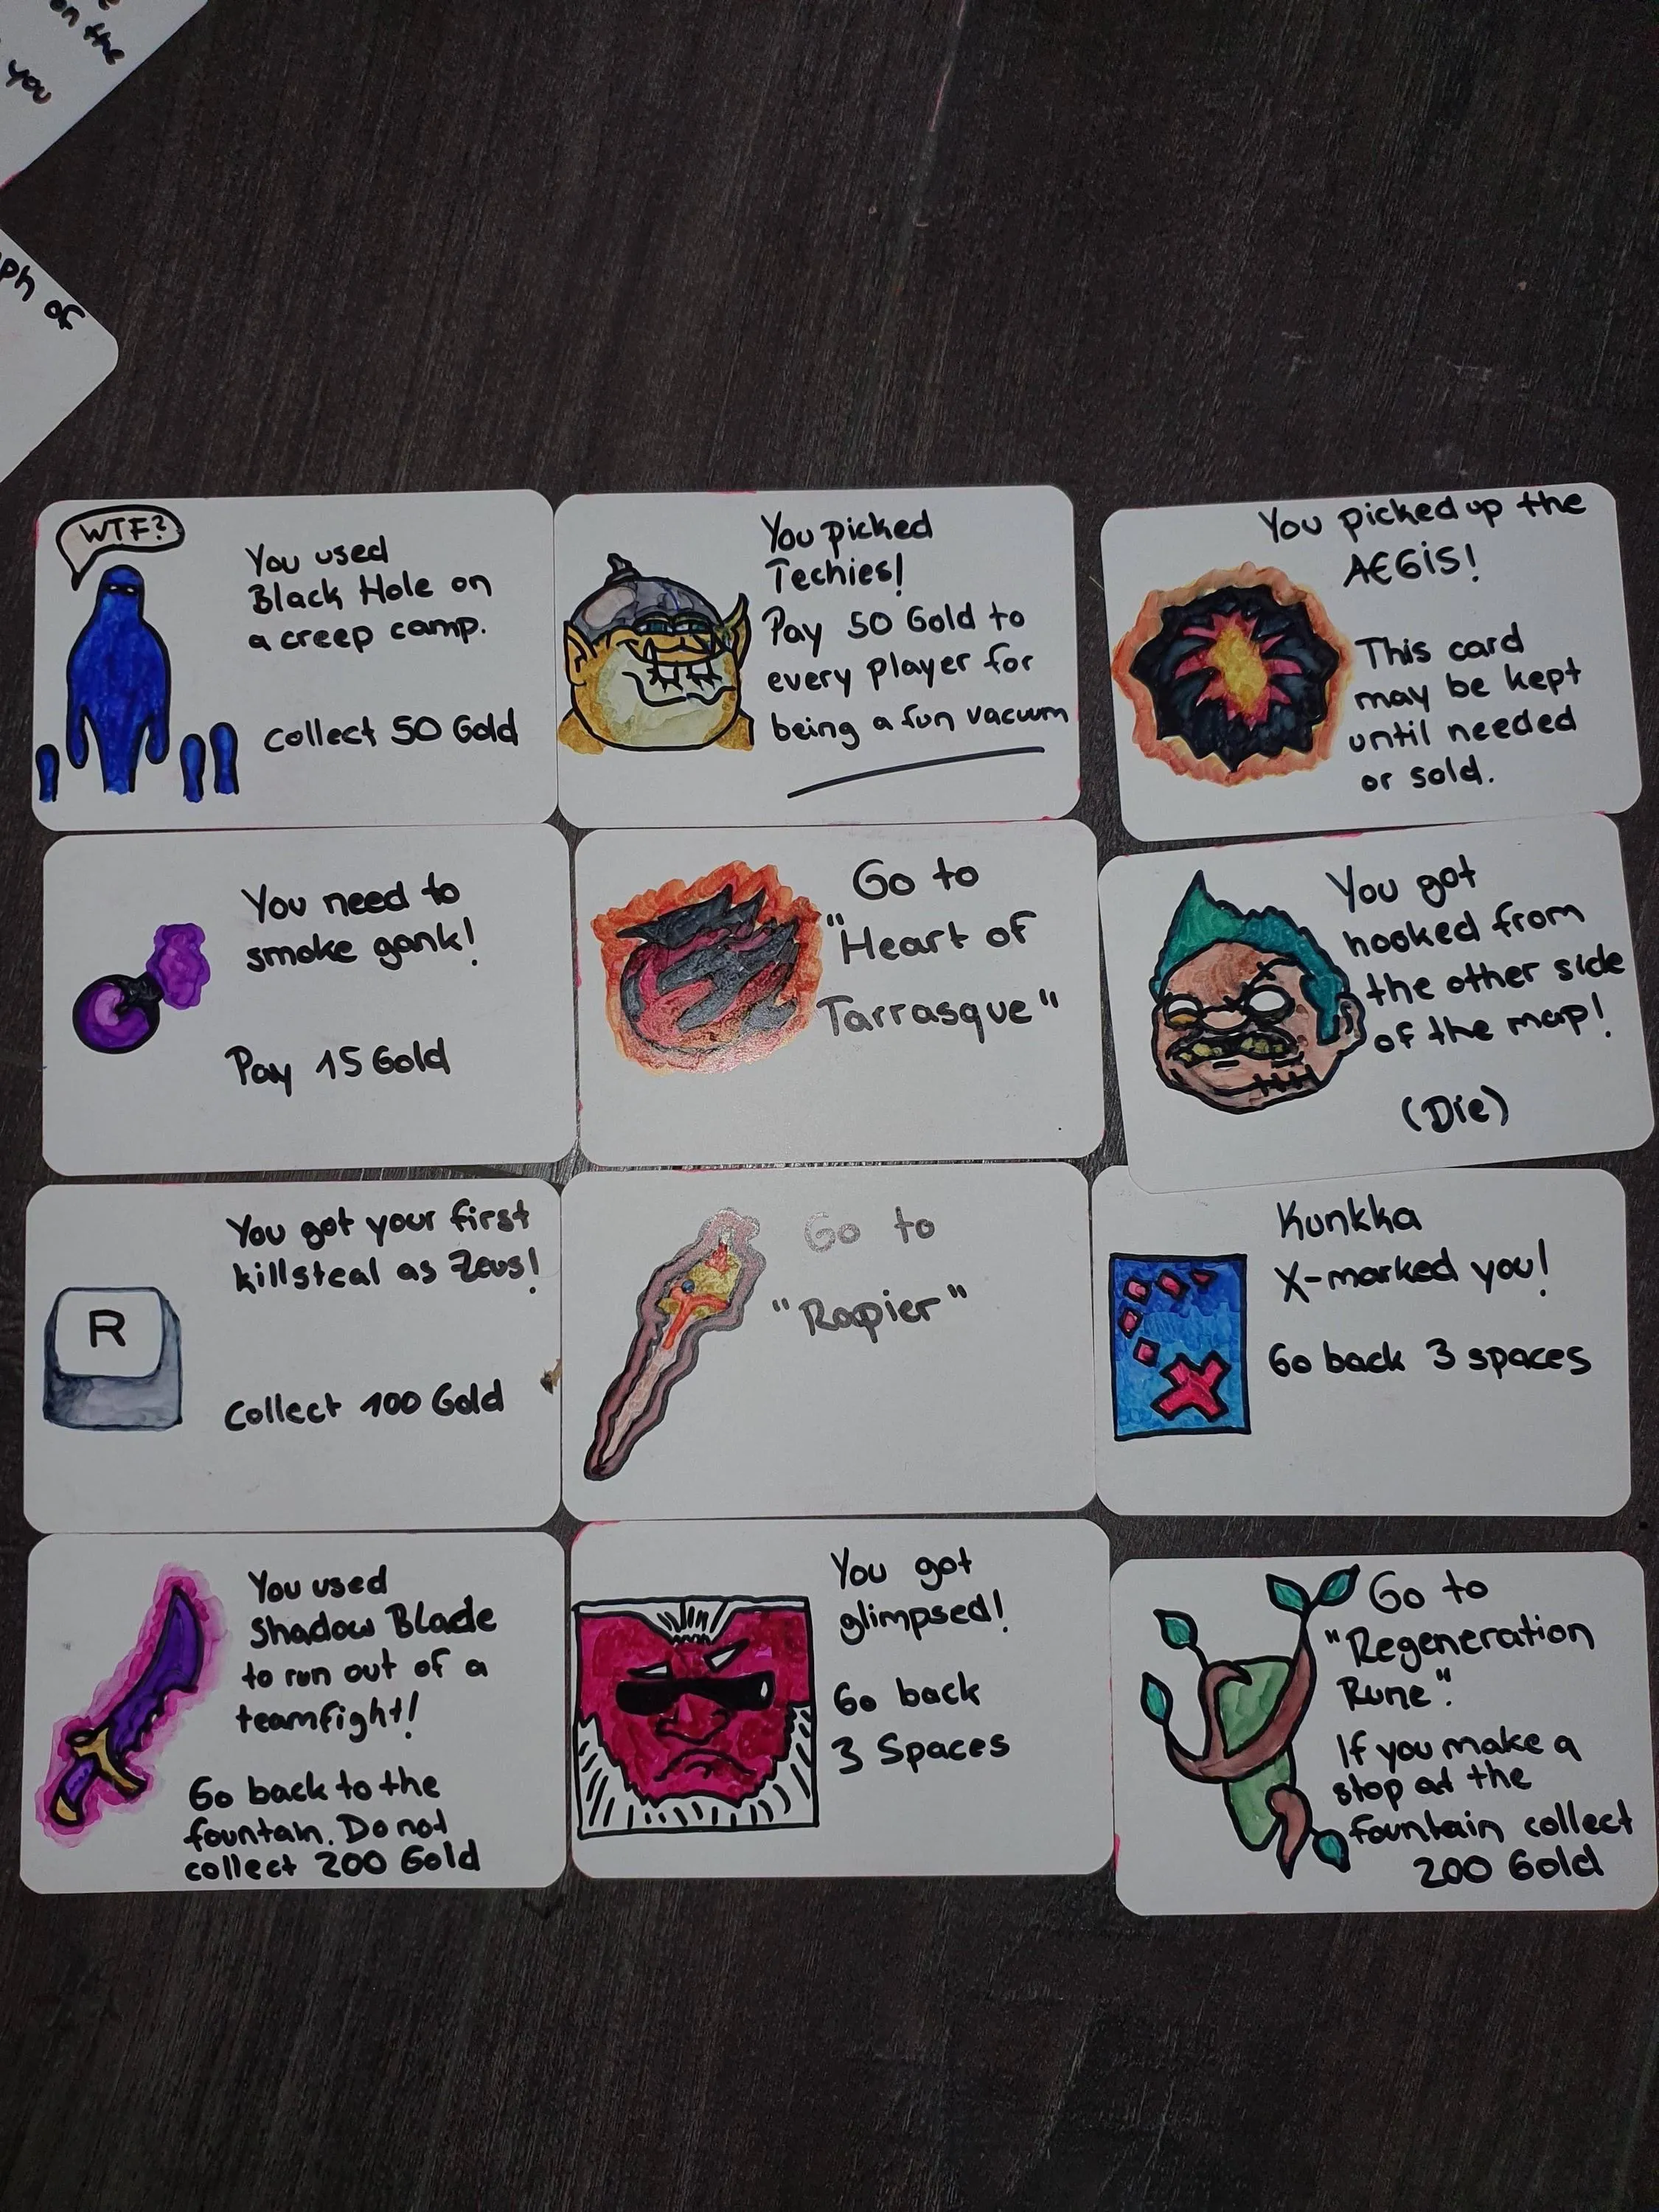 on the
you
ph of
WTF?
You used
Black Hole on
a creep camp.
collect 50 Gold
You picked
Techies!
Pay 50 Gold to
every player for
being a fun vacuum
You picked up the
AEGiS!
This card
may be kept
until needed
or sold.
You need to
smoke gank!
Pay 15 Gold
Go to
"Heart of
Tarrasque"
You got
hooked from
the other side
of the map!
(Die)
You got your first
killsteal as Zeus!
R
Collect 100 Gold
Go to
"Rapier"
Kunkka
X-marked you!
Go back 3 spaces
You used
Shadow Blade
to run out of a
teamfight!
Go back to the
fountain. Do not
collect 200 Gold
You got
glimpsed!
Go back
3 Spaces
Go to
"Regeneration
Rune".
If you make a
stop at the
fountain collect
200 Gold